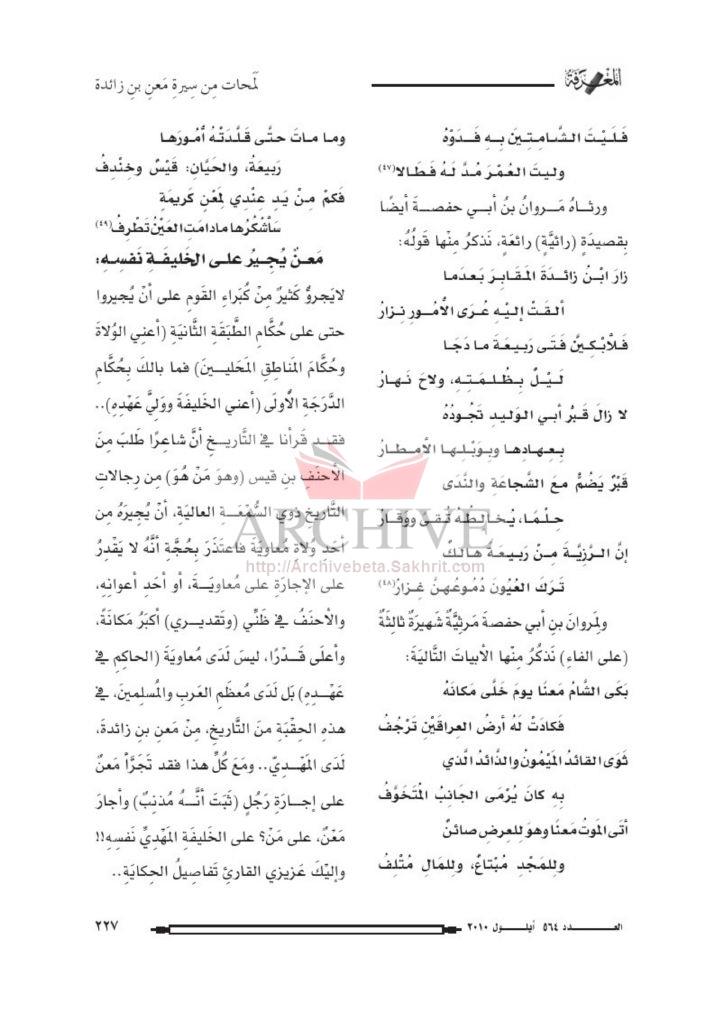 المعرفة
لَمحات مِن سِيرةِ مَعنِ بنِ زائدة
فَلَيْتَ الشَّامِتِينَ بِهِ فَدَوْهُ
وليتَ العُمْرَ مُدَّ لَهُ فَطَالا(٤٧)
ورثاهُ مَروانُ بنُ أبي حفصةَ أيضًا
بِقصيدَةٍ (رائيَّةٍ) رائعَةٍ، نَذكرُ مِنْها قَولُهُ:
زارَ ابْنُ زائدَةَ المَقابِرَ بَعدَما
ألقَتْ إليْهِ عُرَى الأُمُورِ نِزارُ
فَلأبْكِيَنَّ فَتَى رَبيعَةَ ما دَجَا
لَيْلٌ بِظُلمَتِهِ، ولاحَ نَهارُ
لا زالَ قَبرُ أبي الوَليدِ تَجُودُهُ
بِعِهادِها وبِوَبْلِها الأَمطارُ
قَبْرٌ يَضُمُّ معَ الشَّجاعةِ والنَّدَى
حِلْمًا، يُخالِطُهُ تُقىً ووَقارُ
إنَّ الرَّزِيَّةَ مِنْ رَبيعَةَ هالكٌ
تَرَكَ العُيُونَ دُمُوعُهُنَّ غِزارُ(٤٨)
ولِمَروانَ بنِ أبي حفصةَ مَرثيَّةٌ شَهيرَةٌ ثالثَةٌ
(على الفاءِ) نَذكُرُ مِنْها الأبياتَ التَّاليَةَ:
بَكَى الشَّامُ مَعنًا يومَ خَلَّى مَكانَهُ
فَكادَتْ لَهُ أرضُ العِراقَيْنِ تَرْجُفُ
ثَوَى القائدُ المَيْمُونُ والذَّائدُ الَّذي
بِهِ كانَ يُرْمَى الجَانِبُ المُتَخَوَّفُ
أتَى المَوتُ مَعنًا وهوَ لِلعِرضِ صائنٌ
ولِلمَجْدِ مُبْتاعٌ، ولِلمَالِ مُتْلِفُ
وما ماتَ حتَّى قَلَّدَتْهُ أُمُورَها
رَبيعَةُ، والحَيَّانِ: قَيْسٌ وخِنْدِفُ
فَكَمْ مِنْ يَدٍ عِنْدِي لِمَعْنٍ كَريمَةٍ
سَأَشْكُرُها مادامَتِ العَيْنُ تَطْرِفُ(٤٩)
مَعنٌ يُجِيرُ على الخَليفَةِ نَفسِهِ:
لايَجرؤُ كَثيرٌ مِنْ كُبَراءِ القَومِ على أنْ يُجيروا
حتى على حُكَّامِ الطَّبَقَةِ الثَّانيَةِ (أعني الوُلاةَ
وحُكَّامَ المَناطِقِ المَحَليين) فما بالكَ بِحُكَّامِ
الدَّرَجَةِ الأُولى (أعني الخَليفَةَ ووَليَّ عَهْدِهِ)..
فقد قَرأنا في التَّاريخِ أنَّ شاعرًا طَلبَ مِنَ
الأحنَفِ بنِ قيس (وهوَ مَنْ هُوَ) مِن رِجالاتِ
التَّاريخِ ذَوي السُّمْعَةِ العاليَةِ، أنْ يُجيرَهُ مِن
أحَدِ وُلاةِ مُعاويَةَ فاعتَذَرَ بِحُجَّةِ أنَّهُ لا يَقْدِرُ
على الإجارَةِ على مُعاويَةَ، أو أحَدِ أعوانِهِ،
والأحنَفُ في ظَنِّي (وتَقديري) أكبَرُ مَكانَةً،
وأعلَى قَدْرًا، ليسَ لَدَى مُعاويَةَ (الحاكِمِ في
عَهْدِهِ) بَل لَدَى مُعظَمِ العَربِ والمُسلِمينَ، في
هذهِ الحِقْبَةِ منَ التَّاريخِ، مِنْ مَعنِ بنِ زائدةَ،
لَدَى المَهْديِّ.. ومَعَ كُلِّ هذا فقد تَجَرَّأَ مَعنٌ
على إجارَةِ رَجُلٍ (ثَبَتَ أنَّهُ مُذنِبٌ) وأجارَ
مَعْنٌ، على مَنْ؟ على الخَليفَةِ المَهْديِّ نَفسِهِ!!
وإليْكَ عَزيزي القارئِ تَفاصِيلُ الحِكايَةِ..
ARCHIVE
http://Archivebeta.Sakhrit.com
العدد ٥٦٤ أيلول ٢٠١٠
٢٢٧